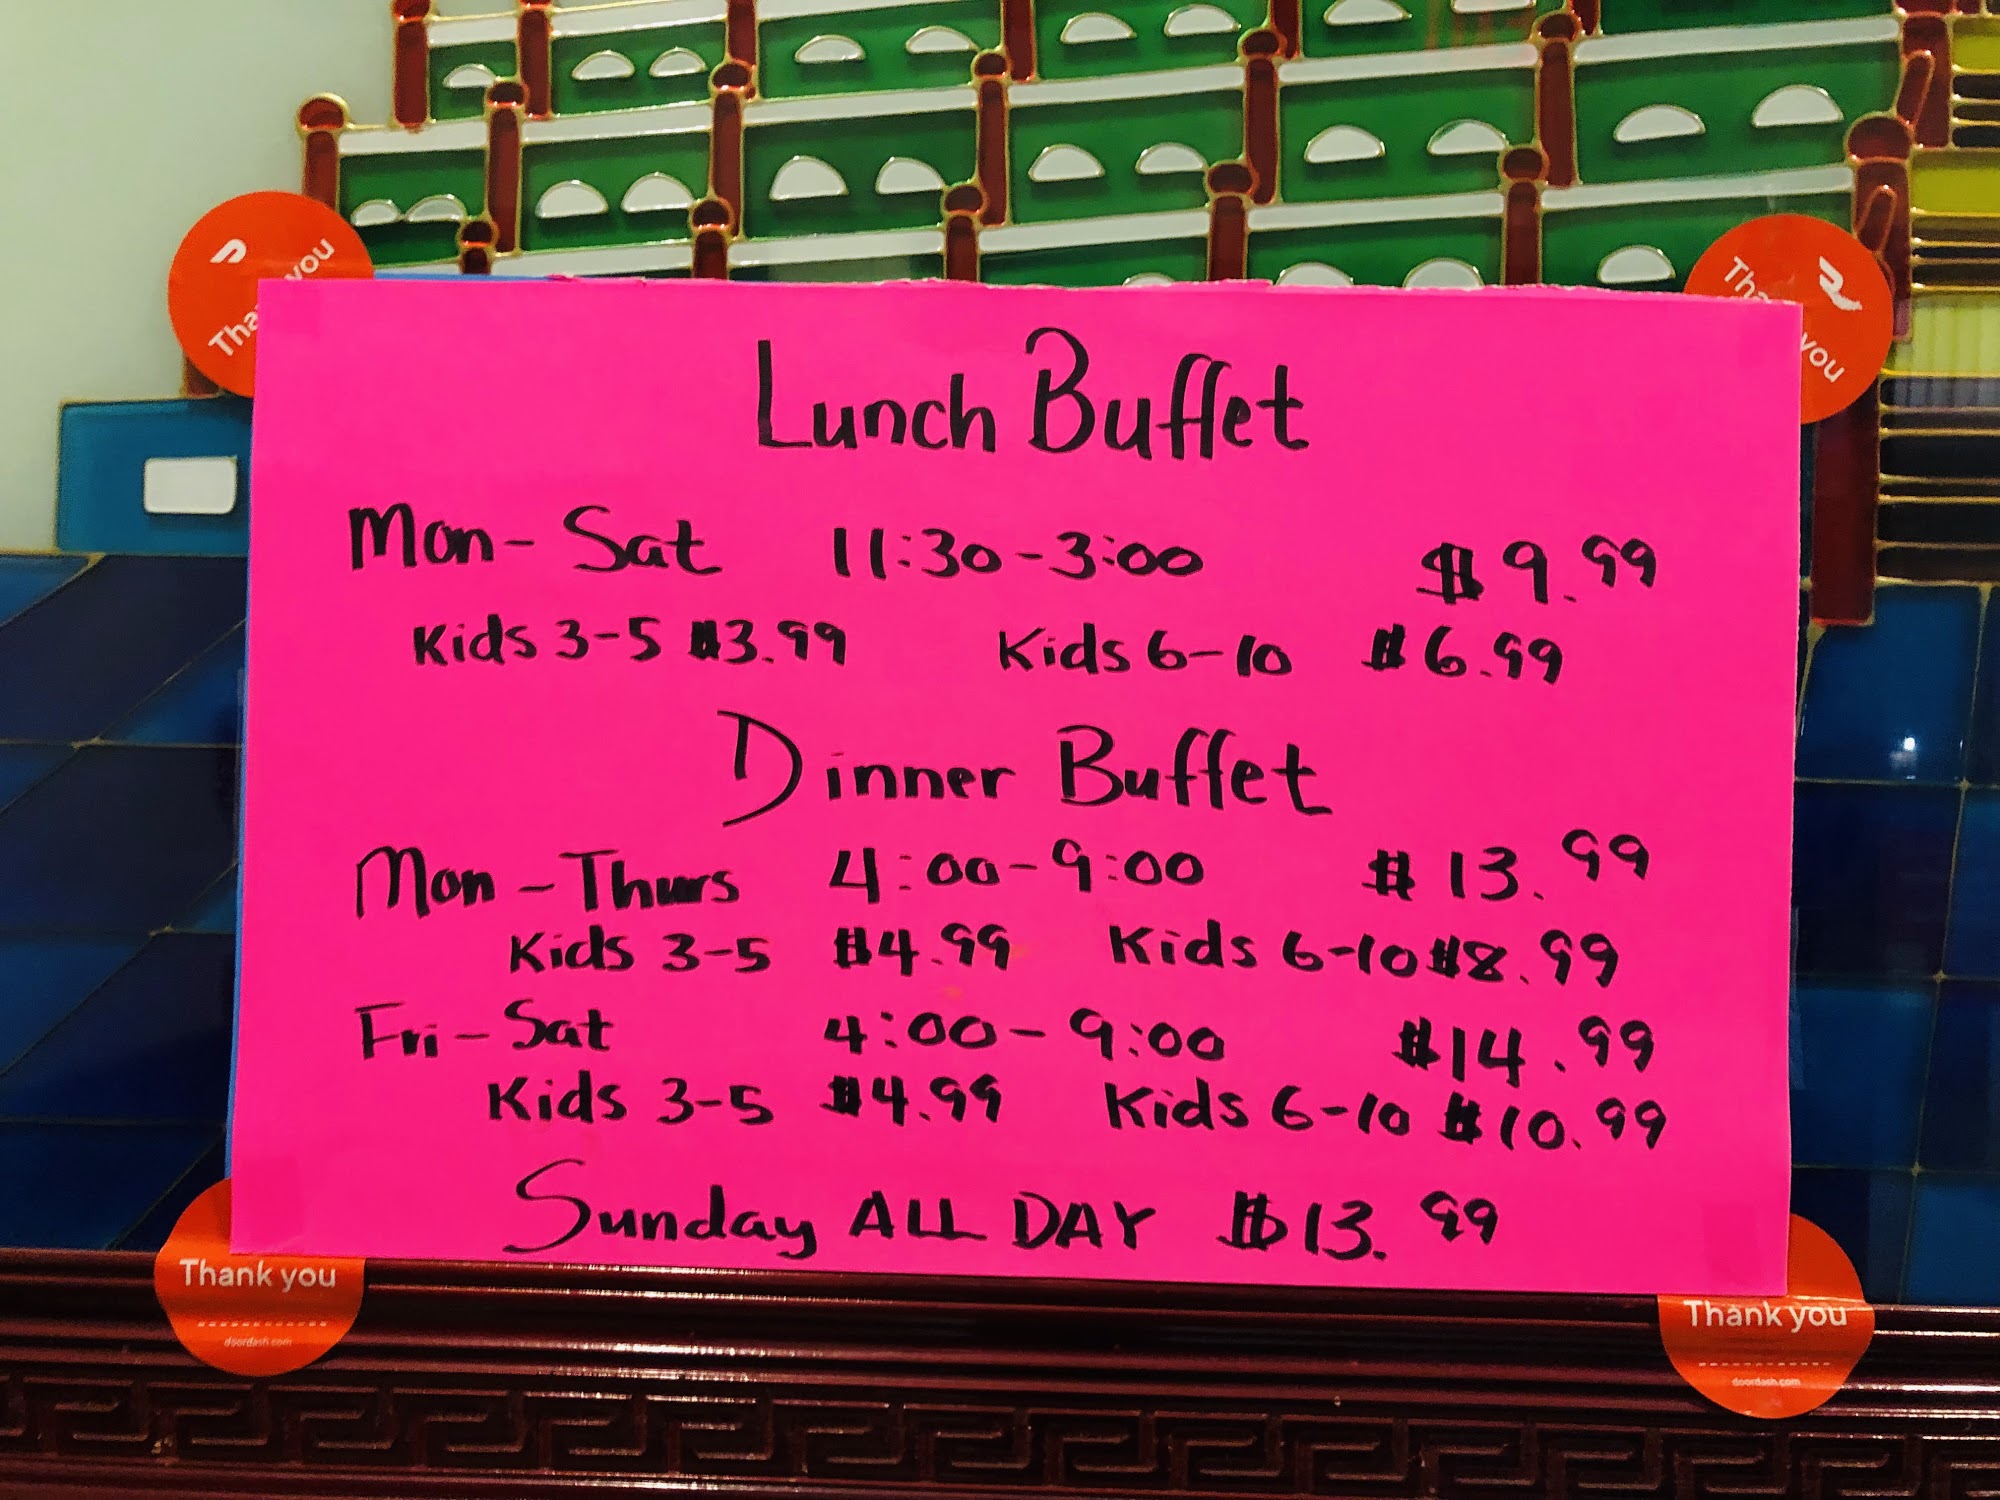 Thank you
Thank you
Lunch Buffet
Mon - Sat 11:30 - 3:00 $9.99
Kids 3-5 $3.99 Kids 6-10 $6.99
Dinner Buffet
Mon - Thurs 4:00 - 9:00 $13.99
Kids 3-5 $4.99 Kids 6-10 $8.99
Fri - Sat 4:00 - 9:00 $14.99
Kids 3-5 $4.99 Kids 6-10 $10.99
Sunday ALL DAY $13.99
Thank you
doordash.com
Thank you
doordash.com